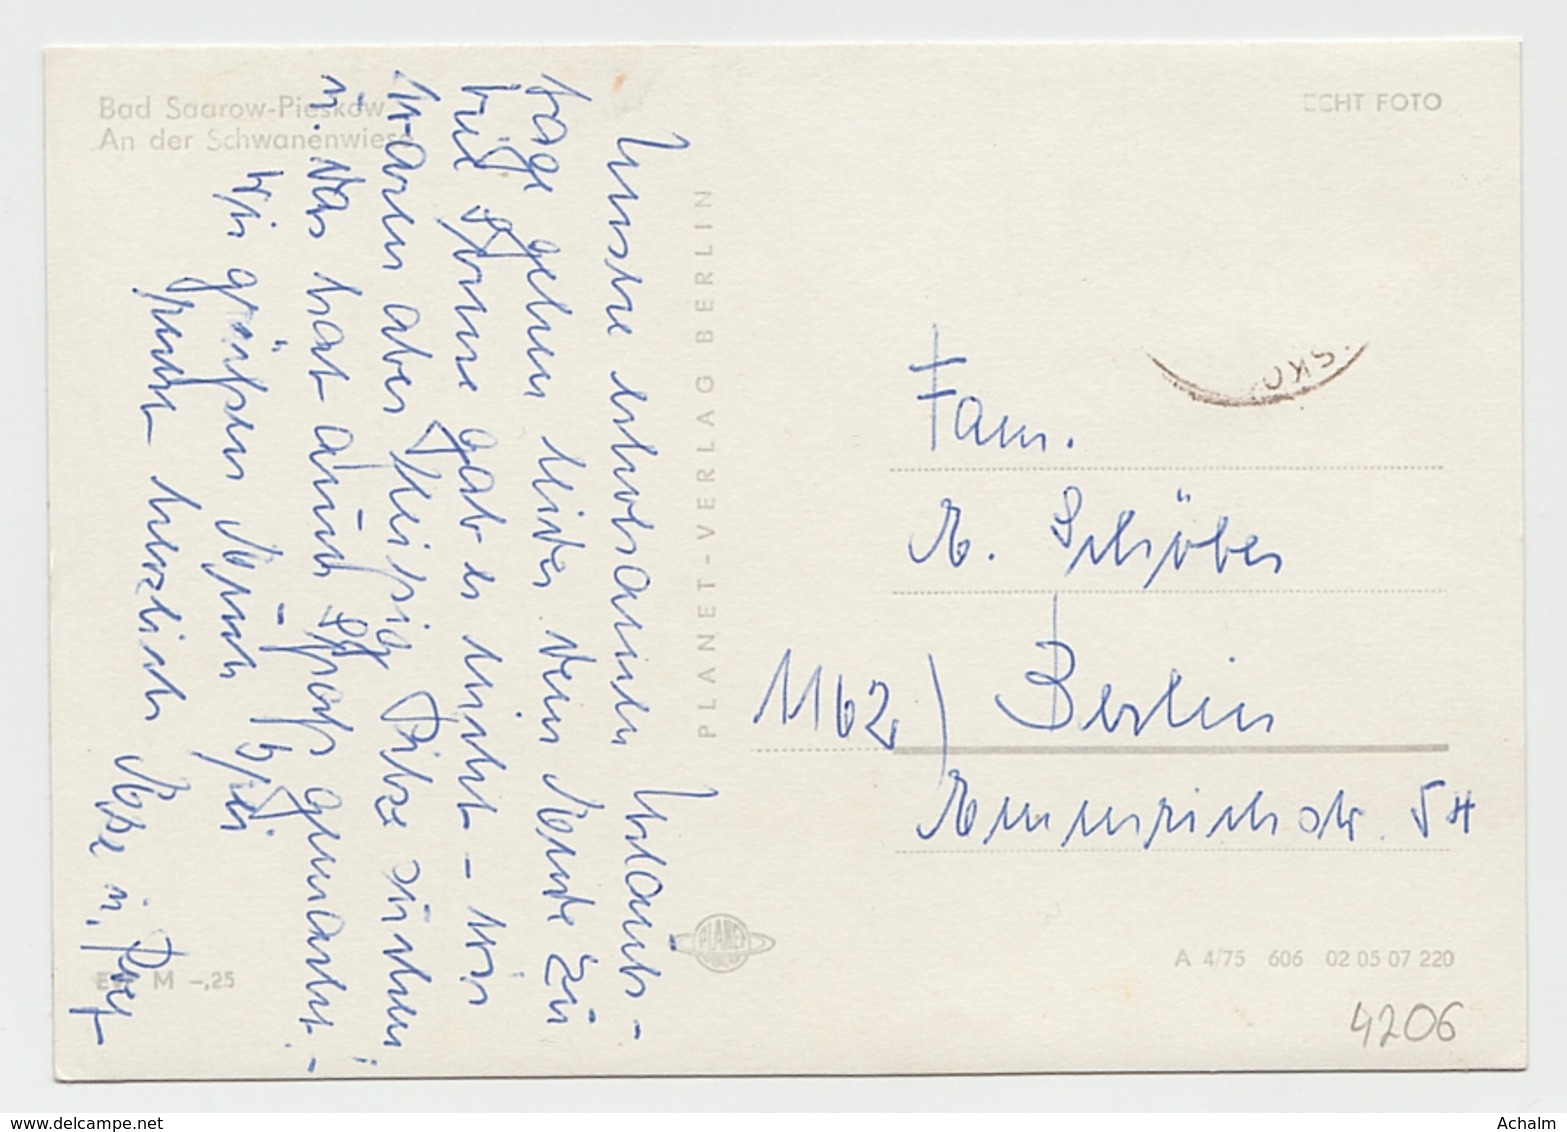 Bad Saarow-Pieskow
An der Schwanenwiese
Unsere erholsamen Urlaubs-
tage gehen leider dem Ende zu
viel Sonne gab es nicht – wir
waren aber fleißig Pilze suchen!
u. das hat auch Spaß gemacht. –
Wir grüßen Euch
herzlich
EVP M -,25
PLANET-VERLAG BERLIN
PLANET
ECHT FOTO
Fam.
Schöber
1162) Berlin
str. 54
A 4/75 606 02 05 07 220
4206
www.delcampe.net
Achalm